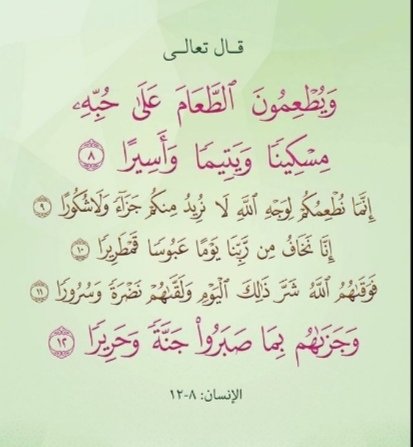 قال تعالى
وَيُطْعِمُونَ ٱلطَّعَامَ عَلَىٰ حُبِّهِۦ
مِسْكِينٗا وَيَتِيمٗا وَأَسِيرًا ٨
إِنَّمَا نُطْعِمُكُمْ لِوَجْهِ ٱللَّهِ لَا نُرِيدُ مِنكُمْ جَزَآءٗ وَلَا شُكُورًا ٩
إِنَّا نَخَافُ مِن رَّبِّنَا يَوْمًا عَبُوسٗا قَمْطَرِيرٗا ١٠
فَوَقَىٰهُمُ ٱللَّهُ شَرَّ ذَٰلِكَ ٱلْيَوْمِ وَلَقَّىٰهُمْ نَضْرَةٗ وَسُرُورٗا ١١
وَجَزَىٰهُم بِمَا صَبَرُوا۟ جَنَّةٗ وَحَرِيرٗا ١٢
الإنسان: ٨-١٢